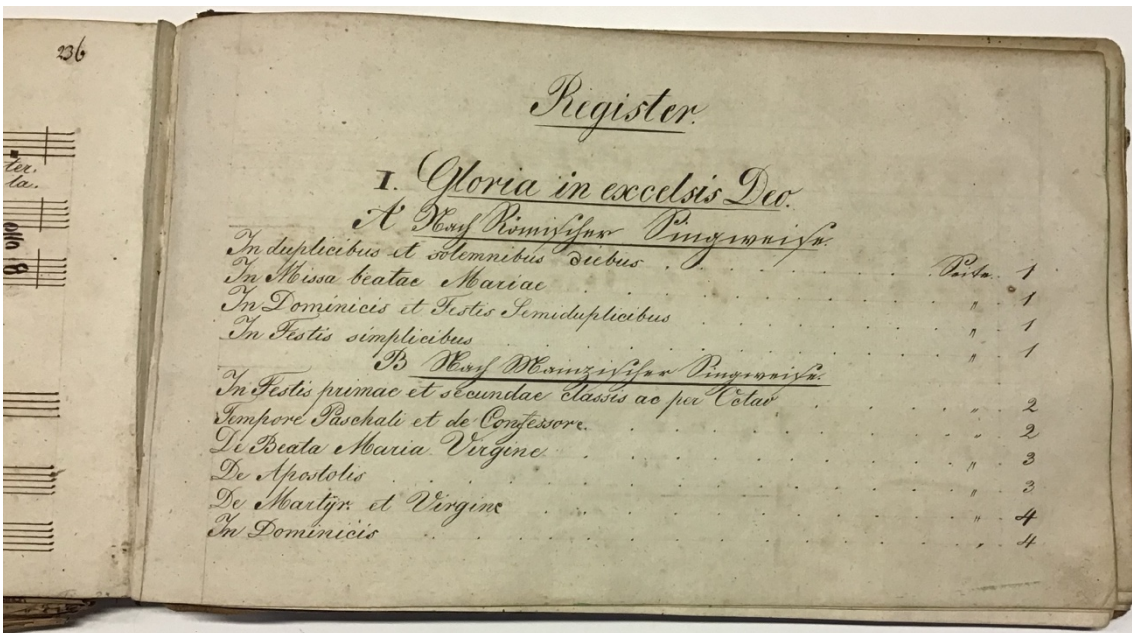 236
ter.
la.
Register.
I. Gloria in excelsis Deo.
A Nach Römischer Singweise.
In duplicibus et solemnibus diebus . . . . . . . . . . Seite. 1
In Missa beatae Mariae . . . . . . . . . . . . . " . 1
In Dominicis et Festis Semiduplicibus . . . . . . . . . " . 1
In Festis simplicibus . . . . . . . . . . . . . . " . 1
B Nach Mainzischer Singweise.
In Festis primae et secundae classis ac per Octav . . . . . . " . 2
Tempore Paschali et de Confessore. . . . . . . . . . . " . 2
De Beata Maria Virgine . . . . . . . . . . . . " . 3
De Apostolis . . . . . . . . . . . . . . . . " . 3
De Martÿr. et Virgine . . . . . . . . . . . . . " . 4
In Dominicis . . . . . . . . . . . . . . . . " . 4